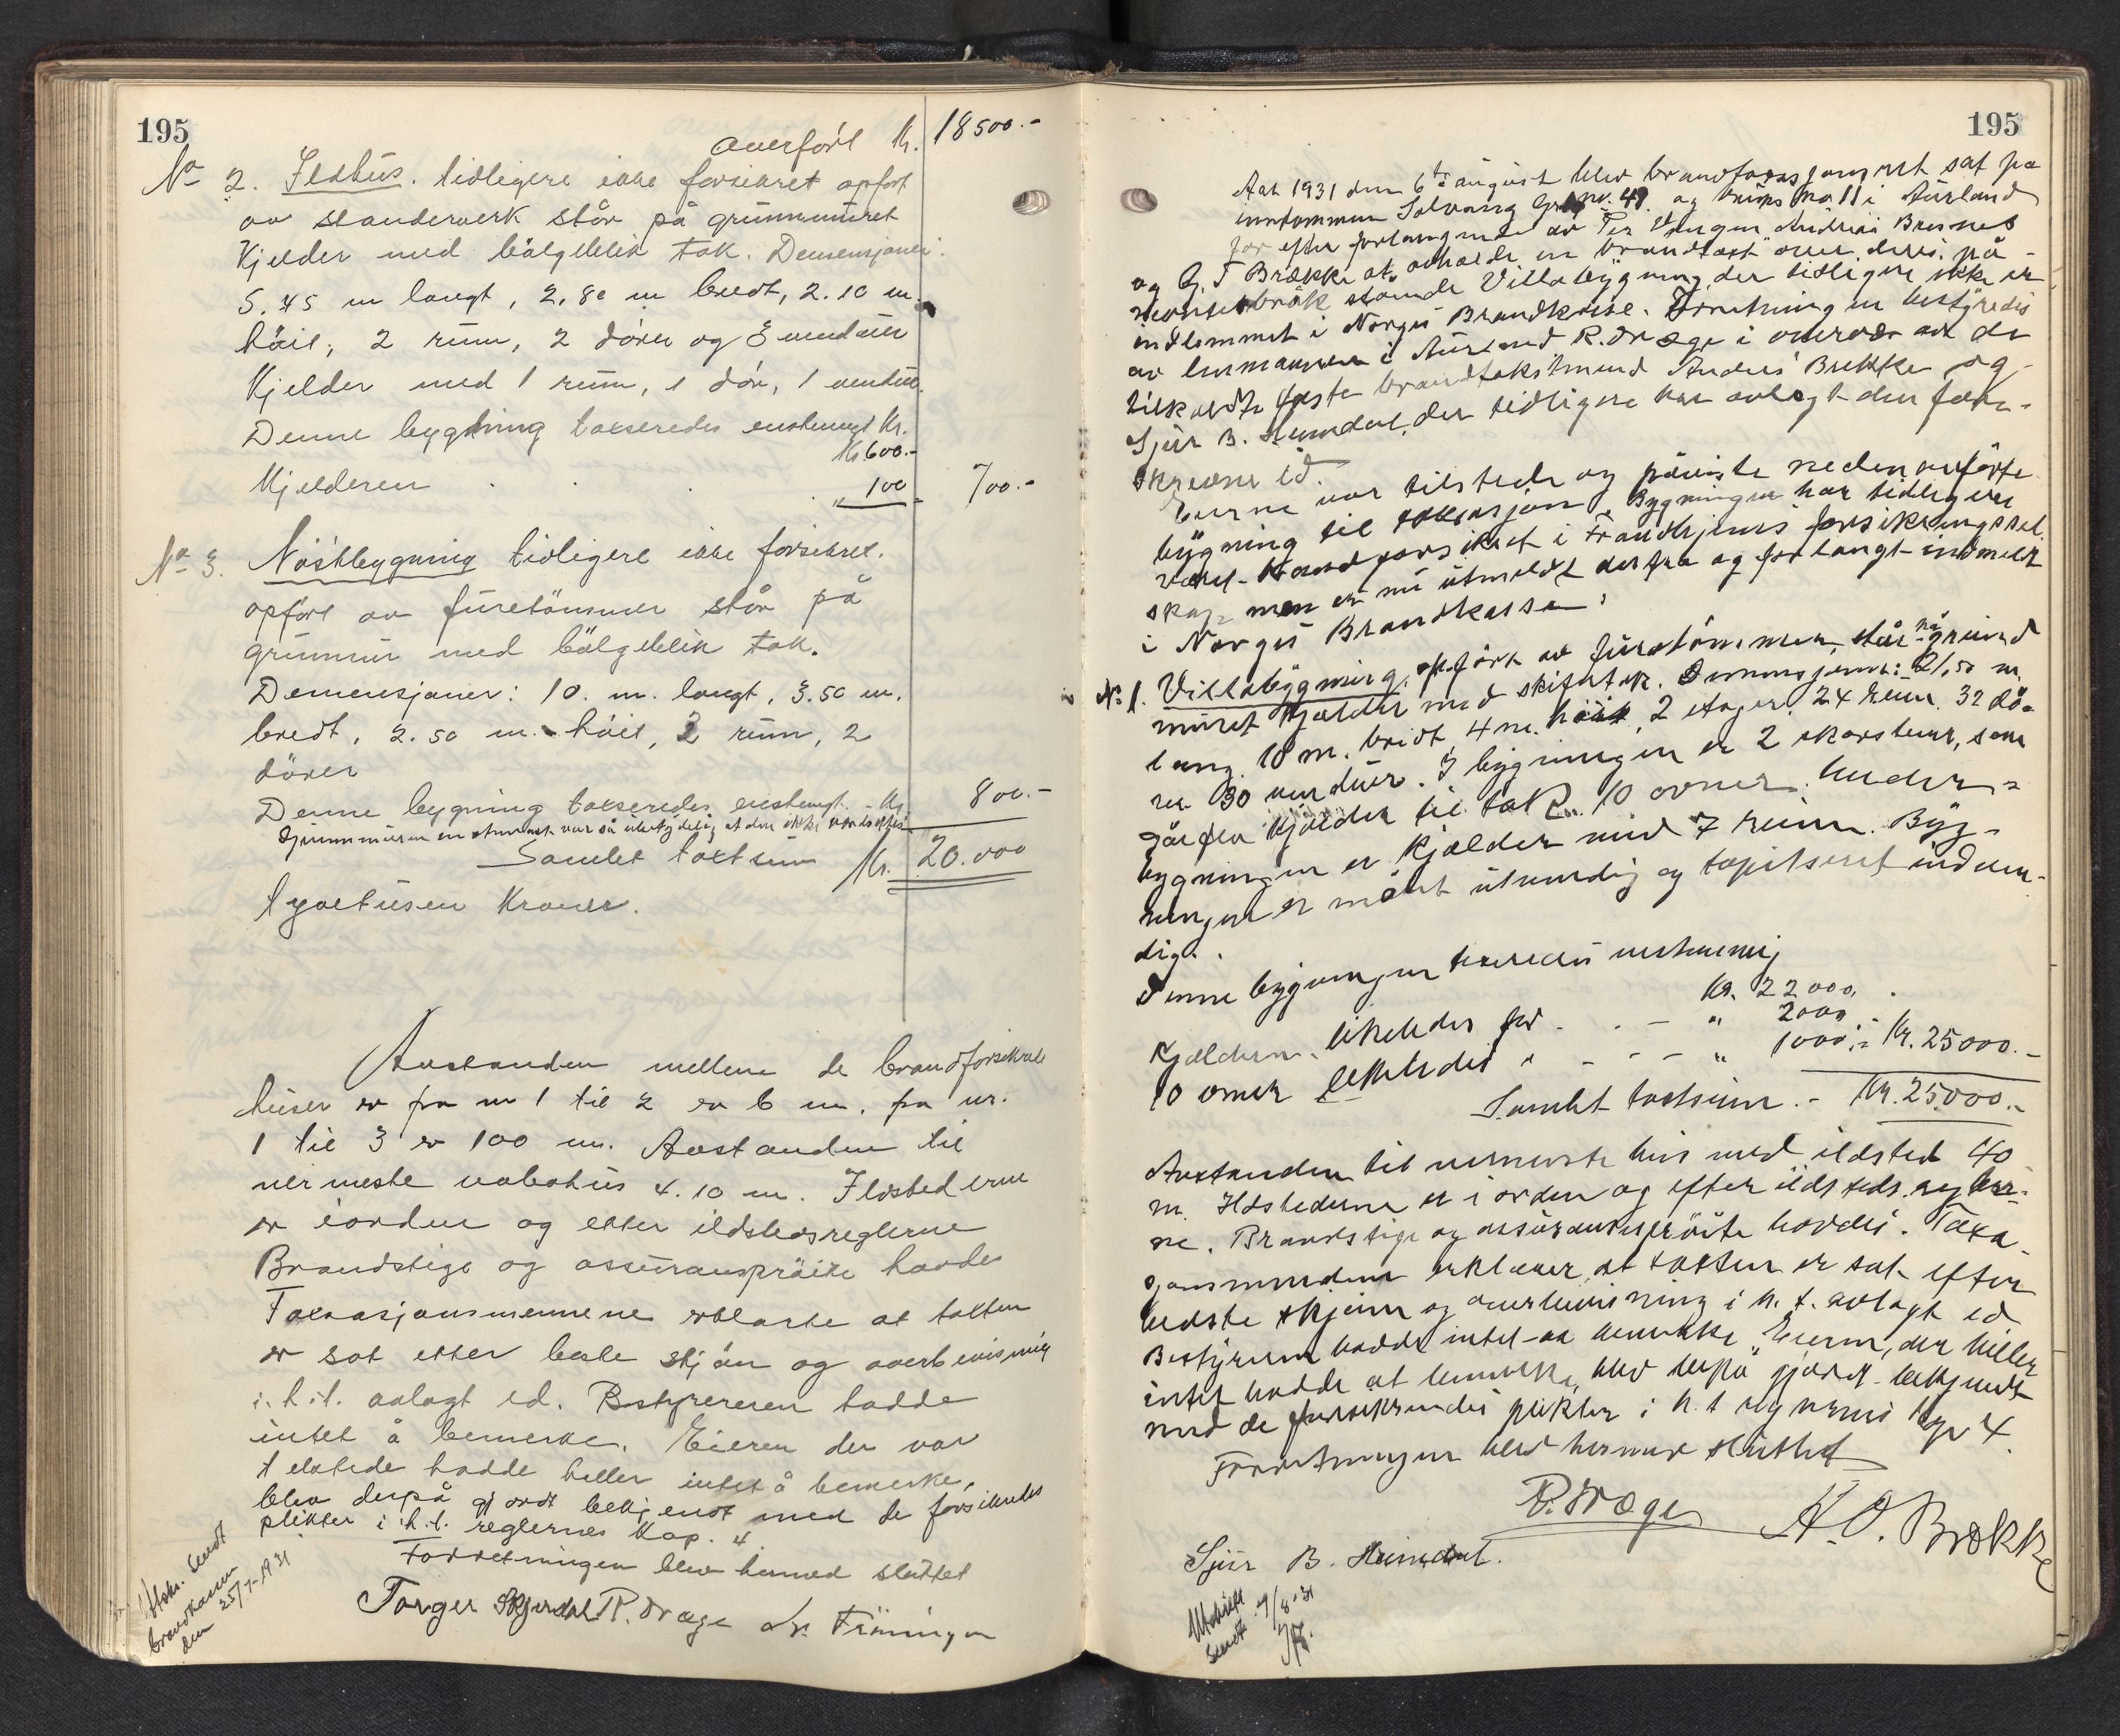 195
overført Kr. 18500.-
No 2. Ildhus. tidligere ikke forsikret opført
av standerverk står på grunnmuret
Kjelder med bølgeblik tak. Demensjoner:
5.45 m langt, 2.80 m bredt, 2.10 m.
høit, 2 rum, 2 dører og 3 vinduer
Kjelder med 1 rum, 1 dør, 1 vindu.
Denne bygning takseredes enstemigt Kr.
Kr 600.-
Kjelderen . . . " 100 - 700.-
No 3. Nöstbygning tidligere ikke forsikret.
opført av furetömmer står på
grunmur med bölgeblik tak.
Demensjoner: 10. m. langt, 3.50 m.
bredt, 2.50 m. höit, 2 rum, 2
dörer
Denne bygning takseredes enstemgt. - Kr. 800.-
Grunnmuren en var så at den ikke
Samlet taktsum Kr. 20.000
tyvetusen Kroner.
Avstanden mellem de brandforsikrede
huser er fra nr 1 til 2 er 6 m. fra nr.
1 til 3 er 100 m. Avstanden til
nermeste nabohus 4.10 m. Ildstederne
er iorden og etter ildstedsreglerne
Brandstige og assuransprøite havdes
Taksasjonsmennene erklarte at takten
er sat etter beste skjön og overbevisning
i. h. t. avlagt ed. Bestyreren hadde
intet å bemerke. Eieren der var
tilstede hadde heller intet å bemerke,
blev derpå gjordt bekjendt med de forsikredes
plikter i h. t. reglernes Kap. 4
Forretningen blev hermed sluttet
Torger Skjerdal R. Dræge
Utskr. sendt
brandkassen
den 25/7-1931
195
Aar 1931 den 6te august blev brandtaxasjonsret sat på
eiendommen Solvang Grnr. 49 og bruks no 11 i Aurland
for efter forlangende av Per Andreas Brusnes
og G. T Brække at avholde en brandtakst over deres på
stående Villabygning, der tidligere ikke er
indlemmet i Norges Brandkasse. Forretningen bestyredes
av lensmannen i Aurland R. Dræge i overvær av de
tilkaldte faste brandtakstmend Anders Brekke og
Sjur B. Heimdal, der tidligere har avlagt den fore-
skrevne ed.
Eierne var tilstede og påviste nedenanførte
bygning til taksasjon. Bygningen har tidligere
været brandforsikret i Trondhjems forsikringssel
skap men er nu utmeldt derfra og forlangt indmeldt
i Norges Brandkasse:
No 1. Villabygning, opfört av furetömmer, står på grund
muret Kjelder med skifertak. Dimensjoner: 21,50 m.
lang. 10 m. bredt, 4 m. höit, 2 etager. 24 rum. 32 dö-
rer 30 vinduer. I bygningen er 2 skorstener, som
går fra Kjælder til tak. 10 ovner. Under
bygningen er Kjælder med 7 rum. Byg-
ningen er målt utvendig og tapitseret indven-
dig.
Denne bygningen taxeredes enstemmig
Kr. 22000,
Kjælderen likeledes for . . - " 2000
10 ovner likeledes " - - - " 1000.- Kr. 25000.-
Samlet taxtsum. - Kr. 25000.-
Avstanden til nermeste hus med ildsted 40
m. Ildstederne er i orden og efter ildsteds regler-
ne. Brandstige og assuransesprøite havdes. Taxa-
sjonsmendene erklærer at taxten er sat efter
bedste skjönn og overbevisning i h. t. avlagt ed
Bestyreren hadde intet at bemerke. Eierne, der heller
intet hadde at bemerke, blev derpå gjordt bekjendt
med de forsikrendes plikter i h. t reglernes Kap 4.
Forretningen blev hermed sluttet
R. Dræge
A. O. Brekke
Sjur B. Heimdal.
Utskrift
sendt 9/8-31